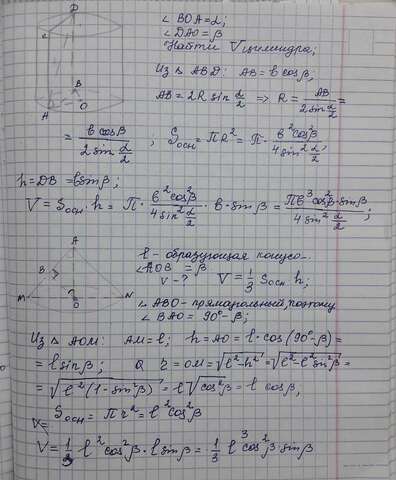 ∠ BOA = α;
∠ DAO = β
Найти V цилиндра;
Из △ ABD: AB = b cos β;
AB = 2R sin α/2 ⇒ R = AB/(2 sin α/2) =
= b cos β/(2 sin α/2); Sосн = πR² = π · b² cos² β/(4 sin² α/2);
h = DB = b sin β;
V = Sосн · h = π · b² cos² β/(4 sin² α/2) · b · sin β = πb³ cos² β sin β/(4 sin² α/2);
H
O
B
C
D
M
B
A
O
N
ℓ - образующая
∠ AOB = β
V - ? V = 1/3 Sосн h;
∠ ABO - прямоугольный
∠ BAO = 90° - β;
Из △ AOM: AM = ℓ; h = AO = ℓ · cos (90° - β) =
= ℓ sin β; R = OM = √(ℓ² - h²) = √(ℓ² - ℓ² sin² β) =
= √(ℓ² (1 - sin² β)) = ℓ √(cos² β) = ℓ cos β;
Sосн = π r² = ℓ² cos² β
V =
V = 1/3 ℓ² cos² β · ℓ sin β = 1/3 ℓ³ cos² β sin β